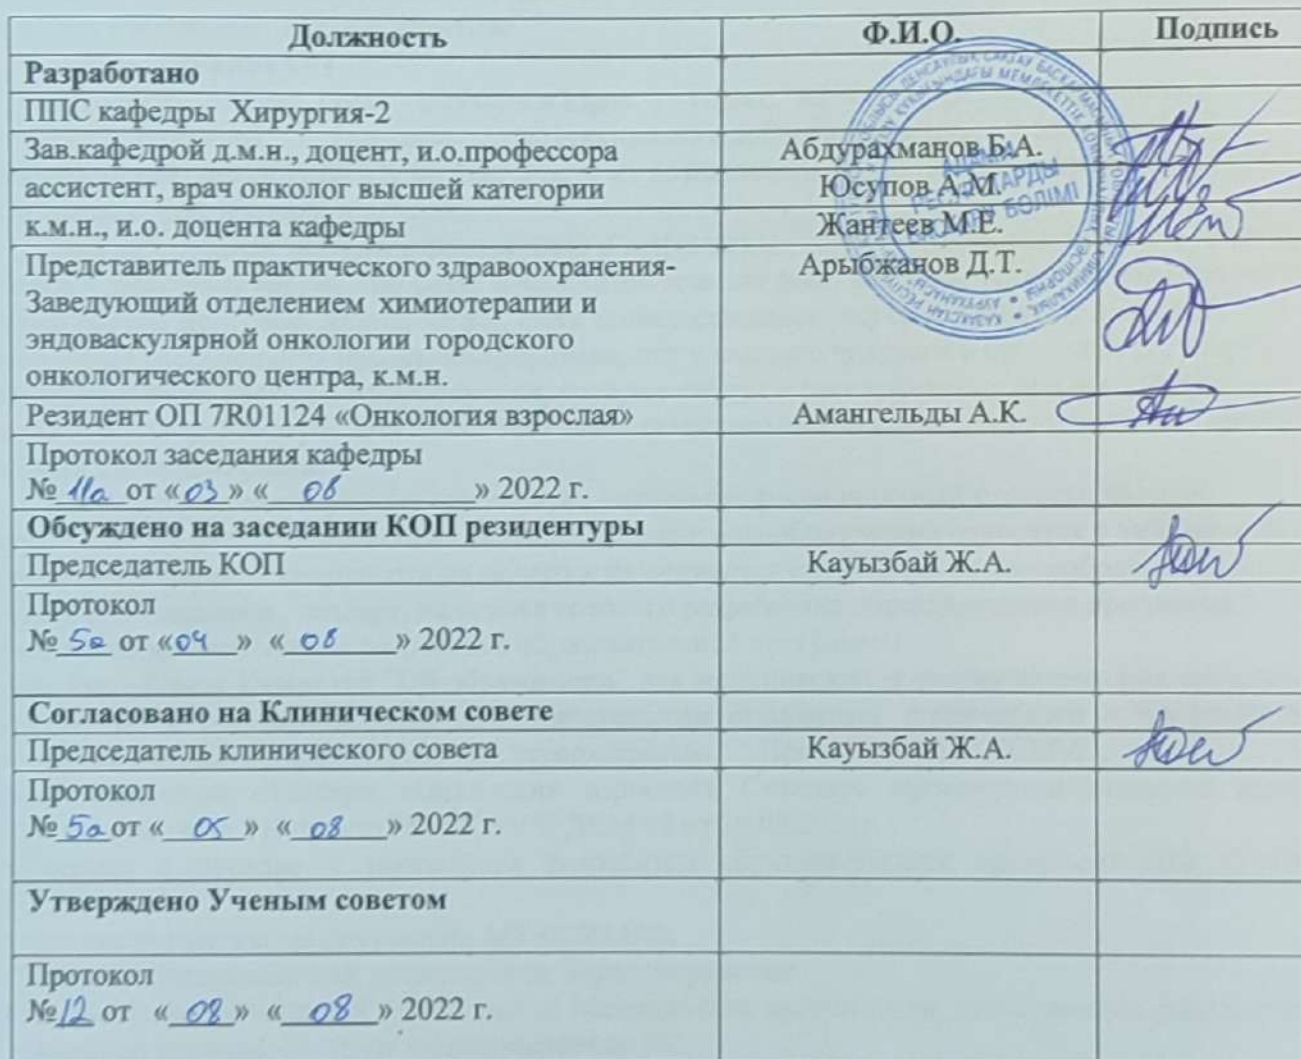 Должность Ф.И.О. Подпись
Разработано
ППС кафедры Хирургия-2
Зав.кафедрой д.м.н., доцент, и.о.профессора Абдурахманов Б.А.
ассистент, врач онколог высшей категории Юсупов А.М.
к.м.н., и.о. доцента кафедры Жантеев М.Е.
Представитель практического здравоохранения- Арыбжанов Д.Т.
Заведующий отделением химиотерапии и
эндоваскулярной онкологии городского
онкологического центра, к.м.н.
Резидент ОП 7R01124 «Онкология взрослая» Амангельды А.К.
Протокол заседания кафедры
№ 11а от «03» « 08 » 2022 г.
Обсуждено на заседании КОП резидентуры
Председатель КОП Кауызбай Ж.А.
Протокол
№ 5а от «04» « 08 » 2022 г.
Согласовано на Клиническом совете
Председатель клинического совета Кауызбай Ж.А.
Протокол
№ 5а от « 05 » « 08 » 2022 г.
Утверждено Ученым советом
Протокол
№12 от «08» « 08 » 2022 г.
РЕСУРСТАРДЫ
БАСҚАРУ БӨЛІМІ